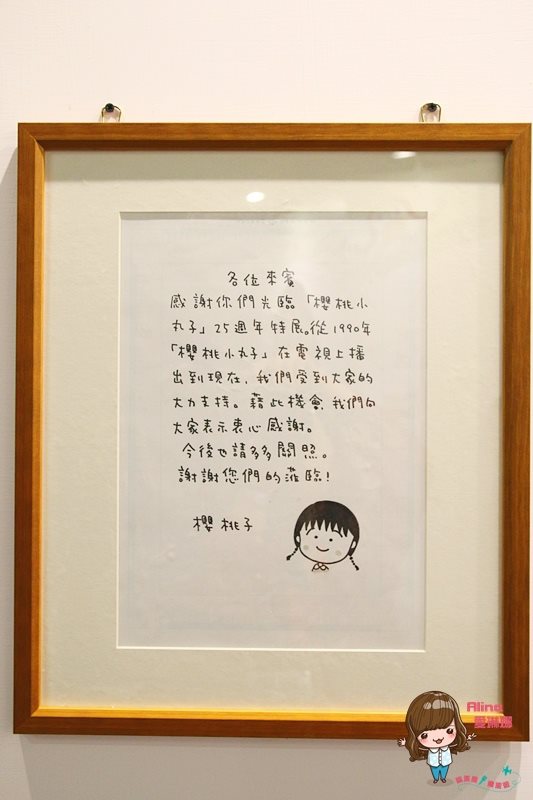 各位來賓
感謝你們光臨「櫻桃小
丸子」25週年特展。從1990年
「櫻桃小丸子」在電視上播
出到現在，我們受到大家的
大力支持。藉此機會，我們向
大家表示衷心感謝。
今後也請多多關照。
謝謝您們的蒞臨！
櫻桃子
Alina
愛琳娜